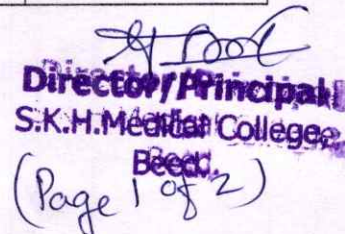 Director/Principal
S.K.H.Medical College,
Beed.
(Page 1 of 2)